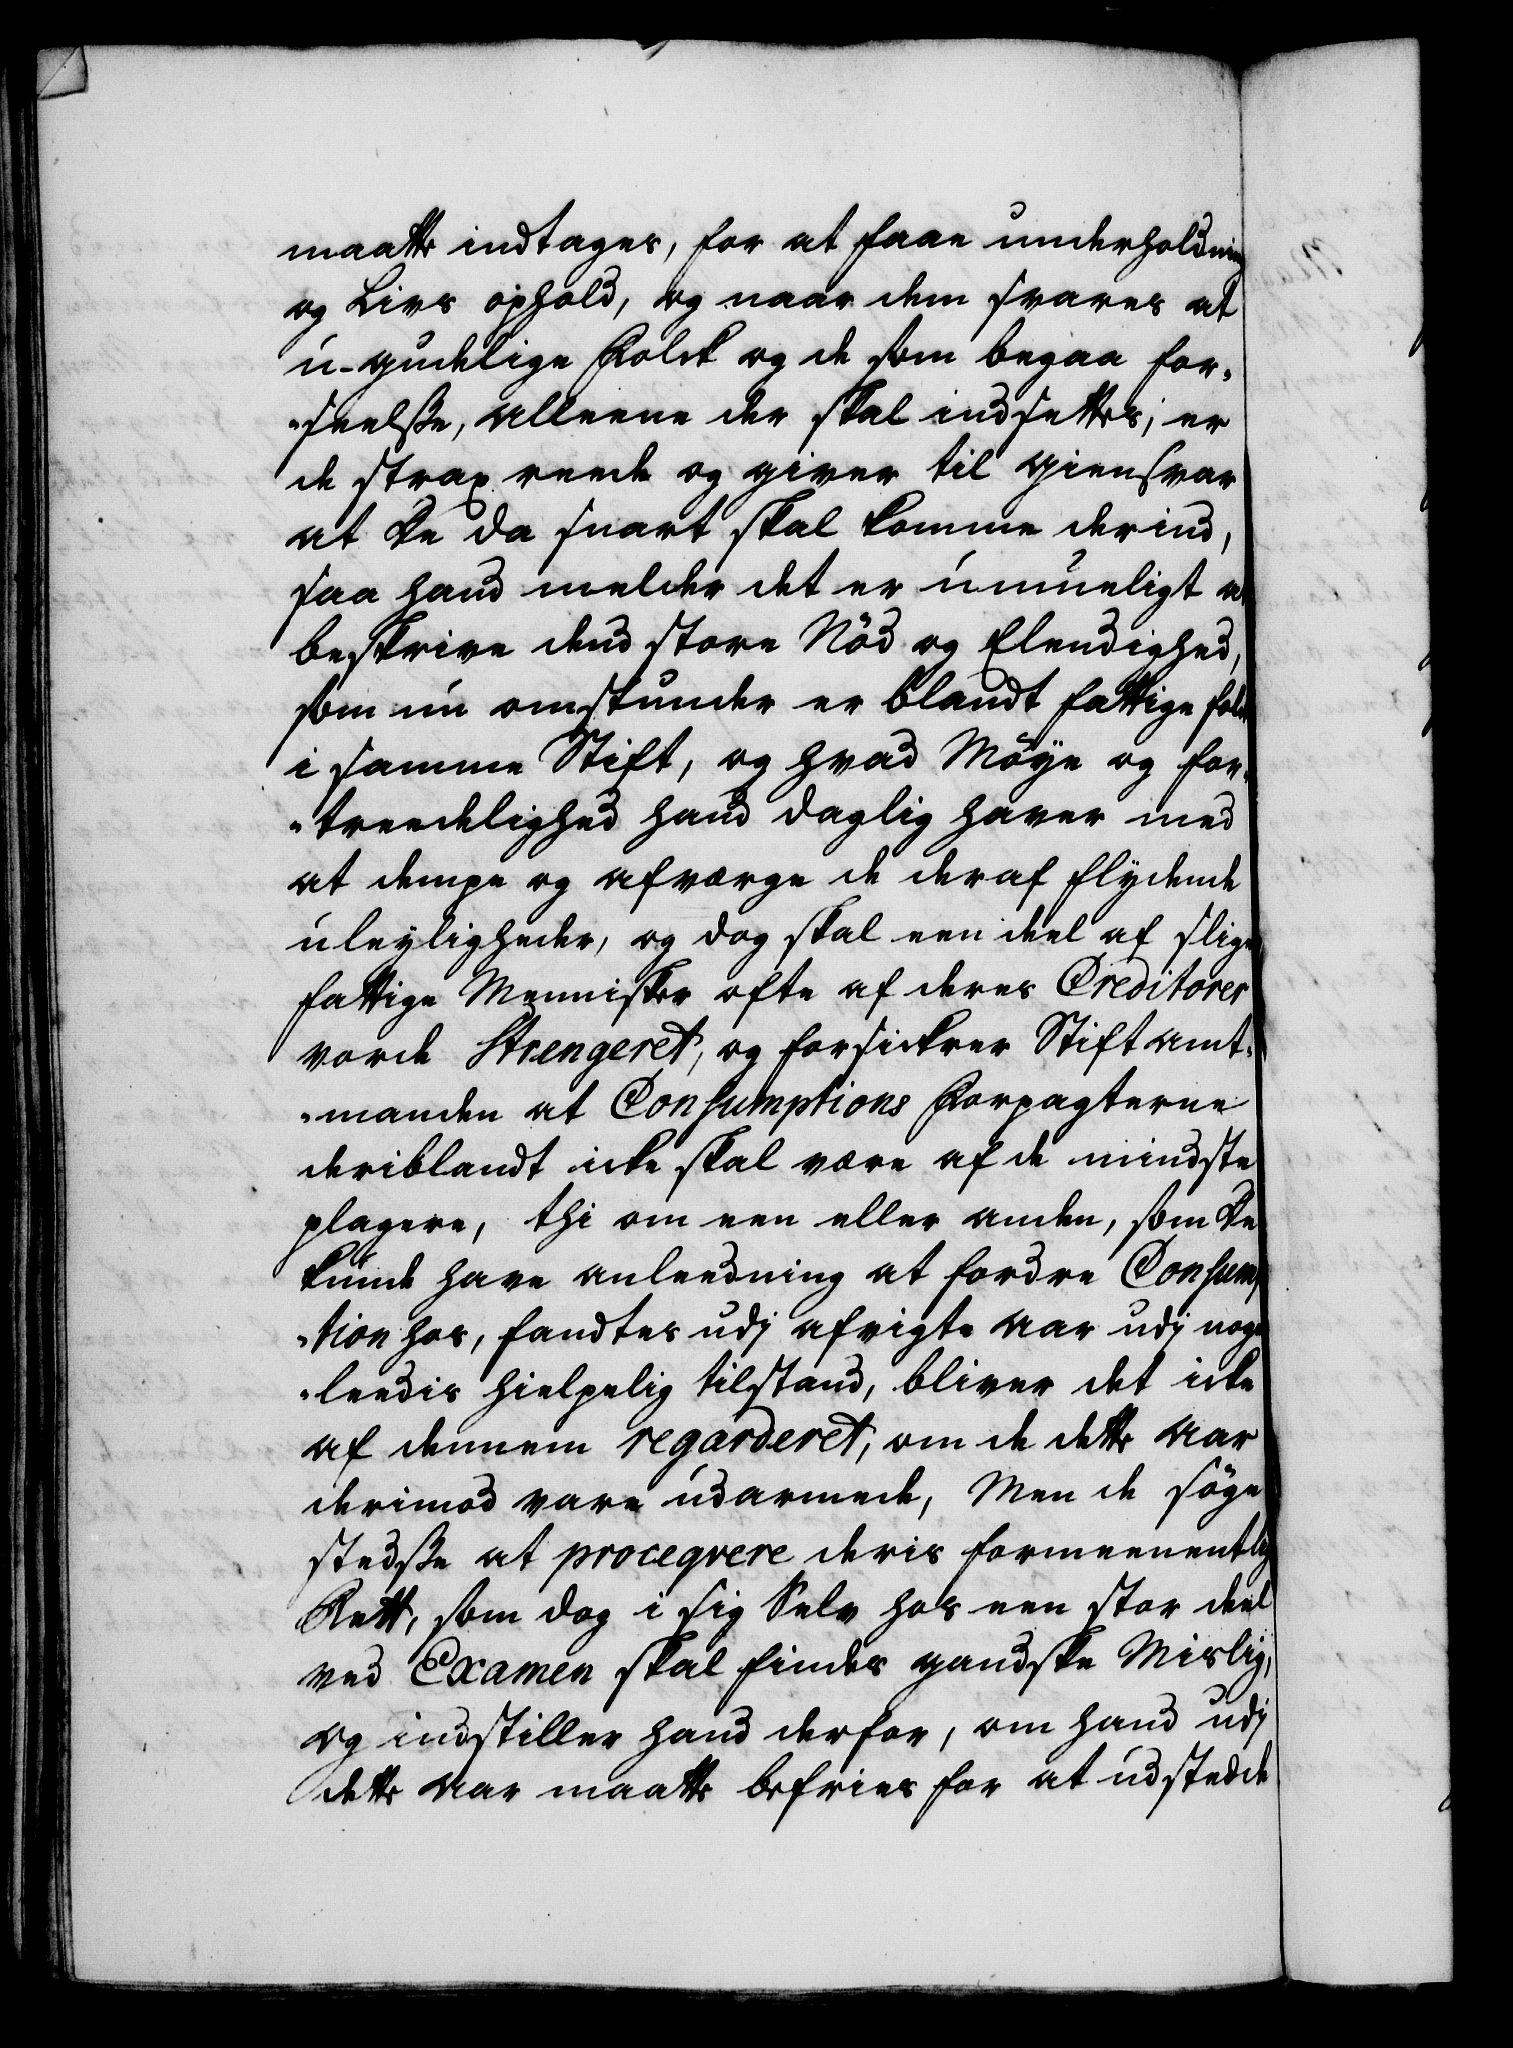 maatte indtages, for at faae underholdning
og Livs ophold, og naar dem svares at
u-gudelige Folck og de som begaa for-
-seelsse, alleene der skal indsettes, er
de strax reede og giver til giensvar
at de da snart skal komme derind,
saa hand melder det er umueligt at
beskrive dend store Nöd og Elendighed,
som nu omstunder er blandt fattige folck
i samme Stift, og hvad Möye og for-
-treedelighed hand daglig haver med
at dempe og afværge de deraf flydende
uleyligheder, og dog skal een deel af slige
fattige Mennisker ofte af deres Creditorer
vorde strengeret, og forsickrer Stiftamt-
-manden at Consumptions Forpagterne
deriblandt icke skal være af de mindste
plagere, thi om een eller anden, som de
kunde have anleedning at fordre Consump-
-tion hos, fandtes udj afvigte Aar udj noge-
-leedis hielpelig tilstand, bliver det icke
af dennem regarderet, om de dette Aar
derimod vare udarmede, Men de söge
stedsse at proceqvere deris formeenentlig
Rett, som dog i sig Selv hos een stor deel
ved Examen skal findes gandske Mislig,
og indstiller hand derfor, om hand udj
dette Aar maatte befries for at udstedde